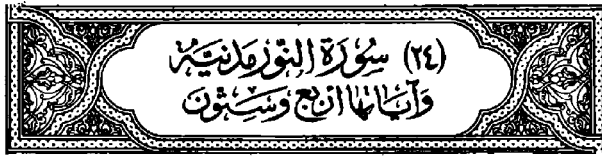 (٢٤) سُورَة النُّور مَدَنِيَّة
وَآيَاتهَا أَرْبَع وَسِتُّونَ